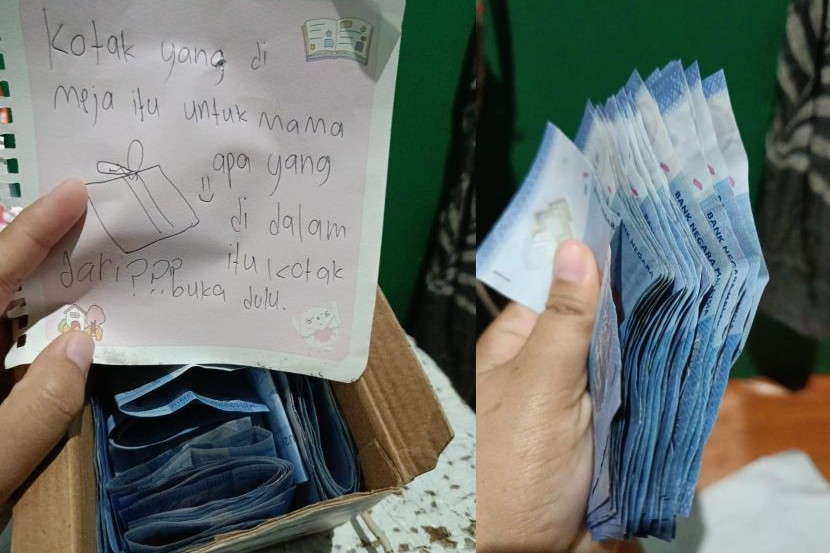 Kotak yang di
meja itu untuk mama
apa yang
di dalam
itu kotak
dari???. buka dulu.
BANK NEGARA
BANK NEGARA
BANK NEGARA M